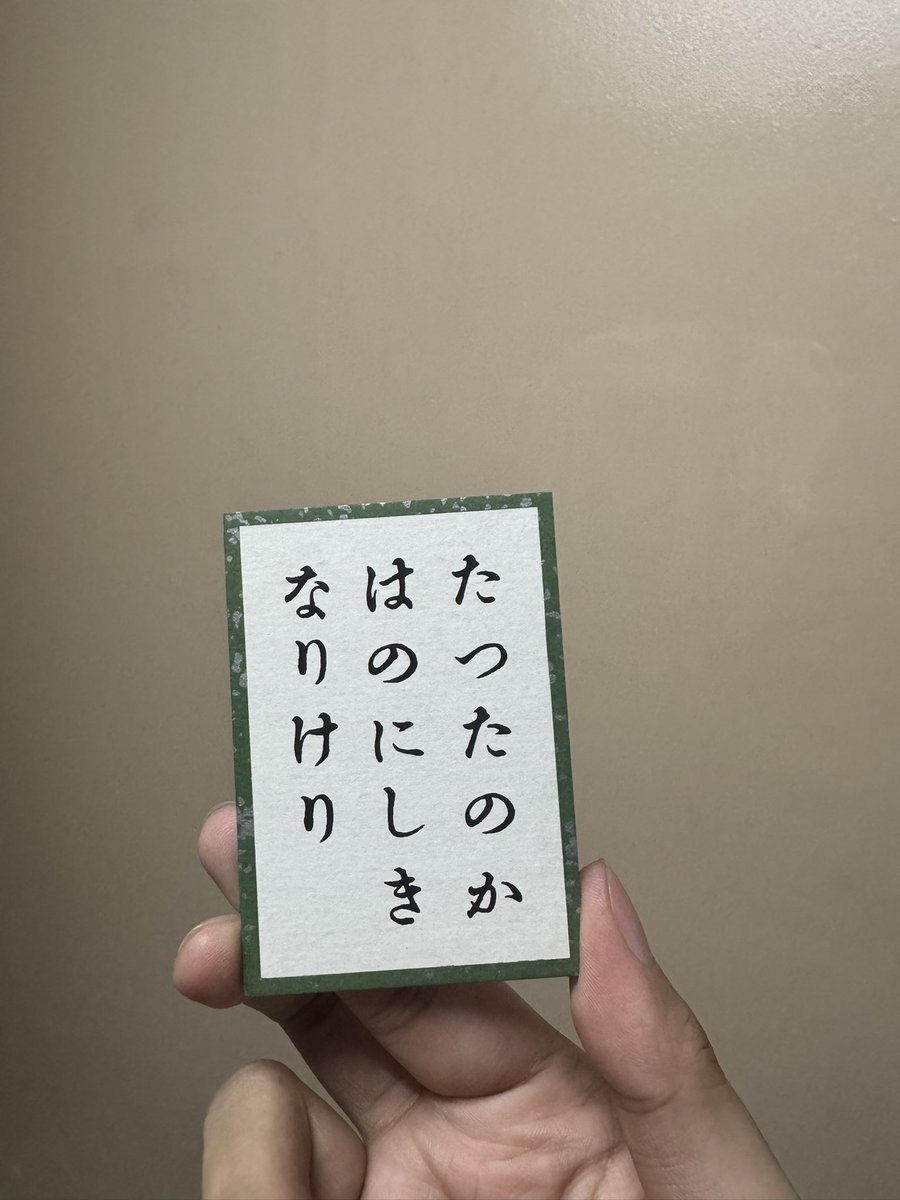 たつたのか
はのにしき
なりけり